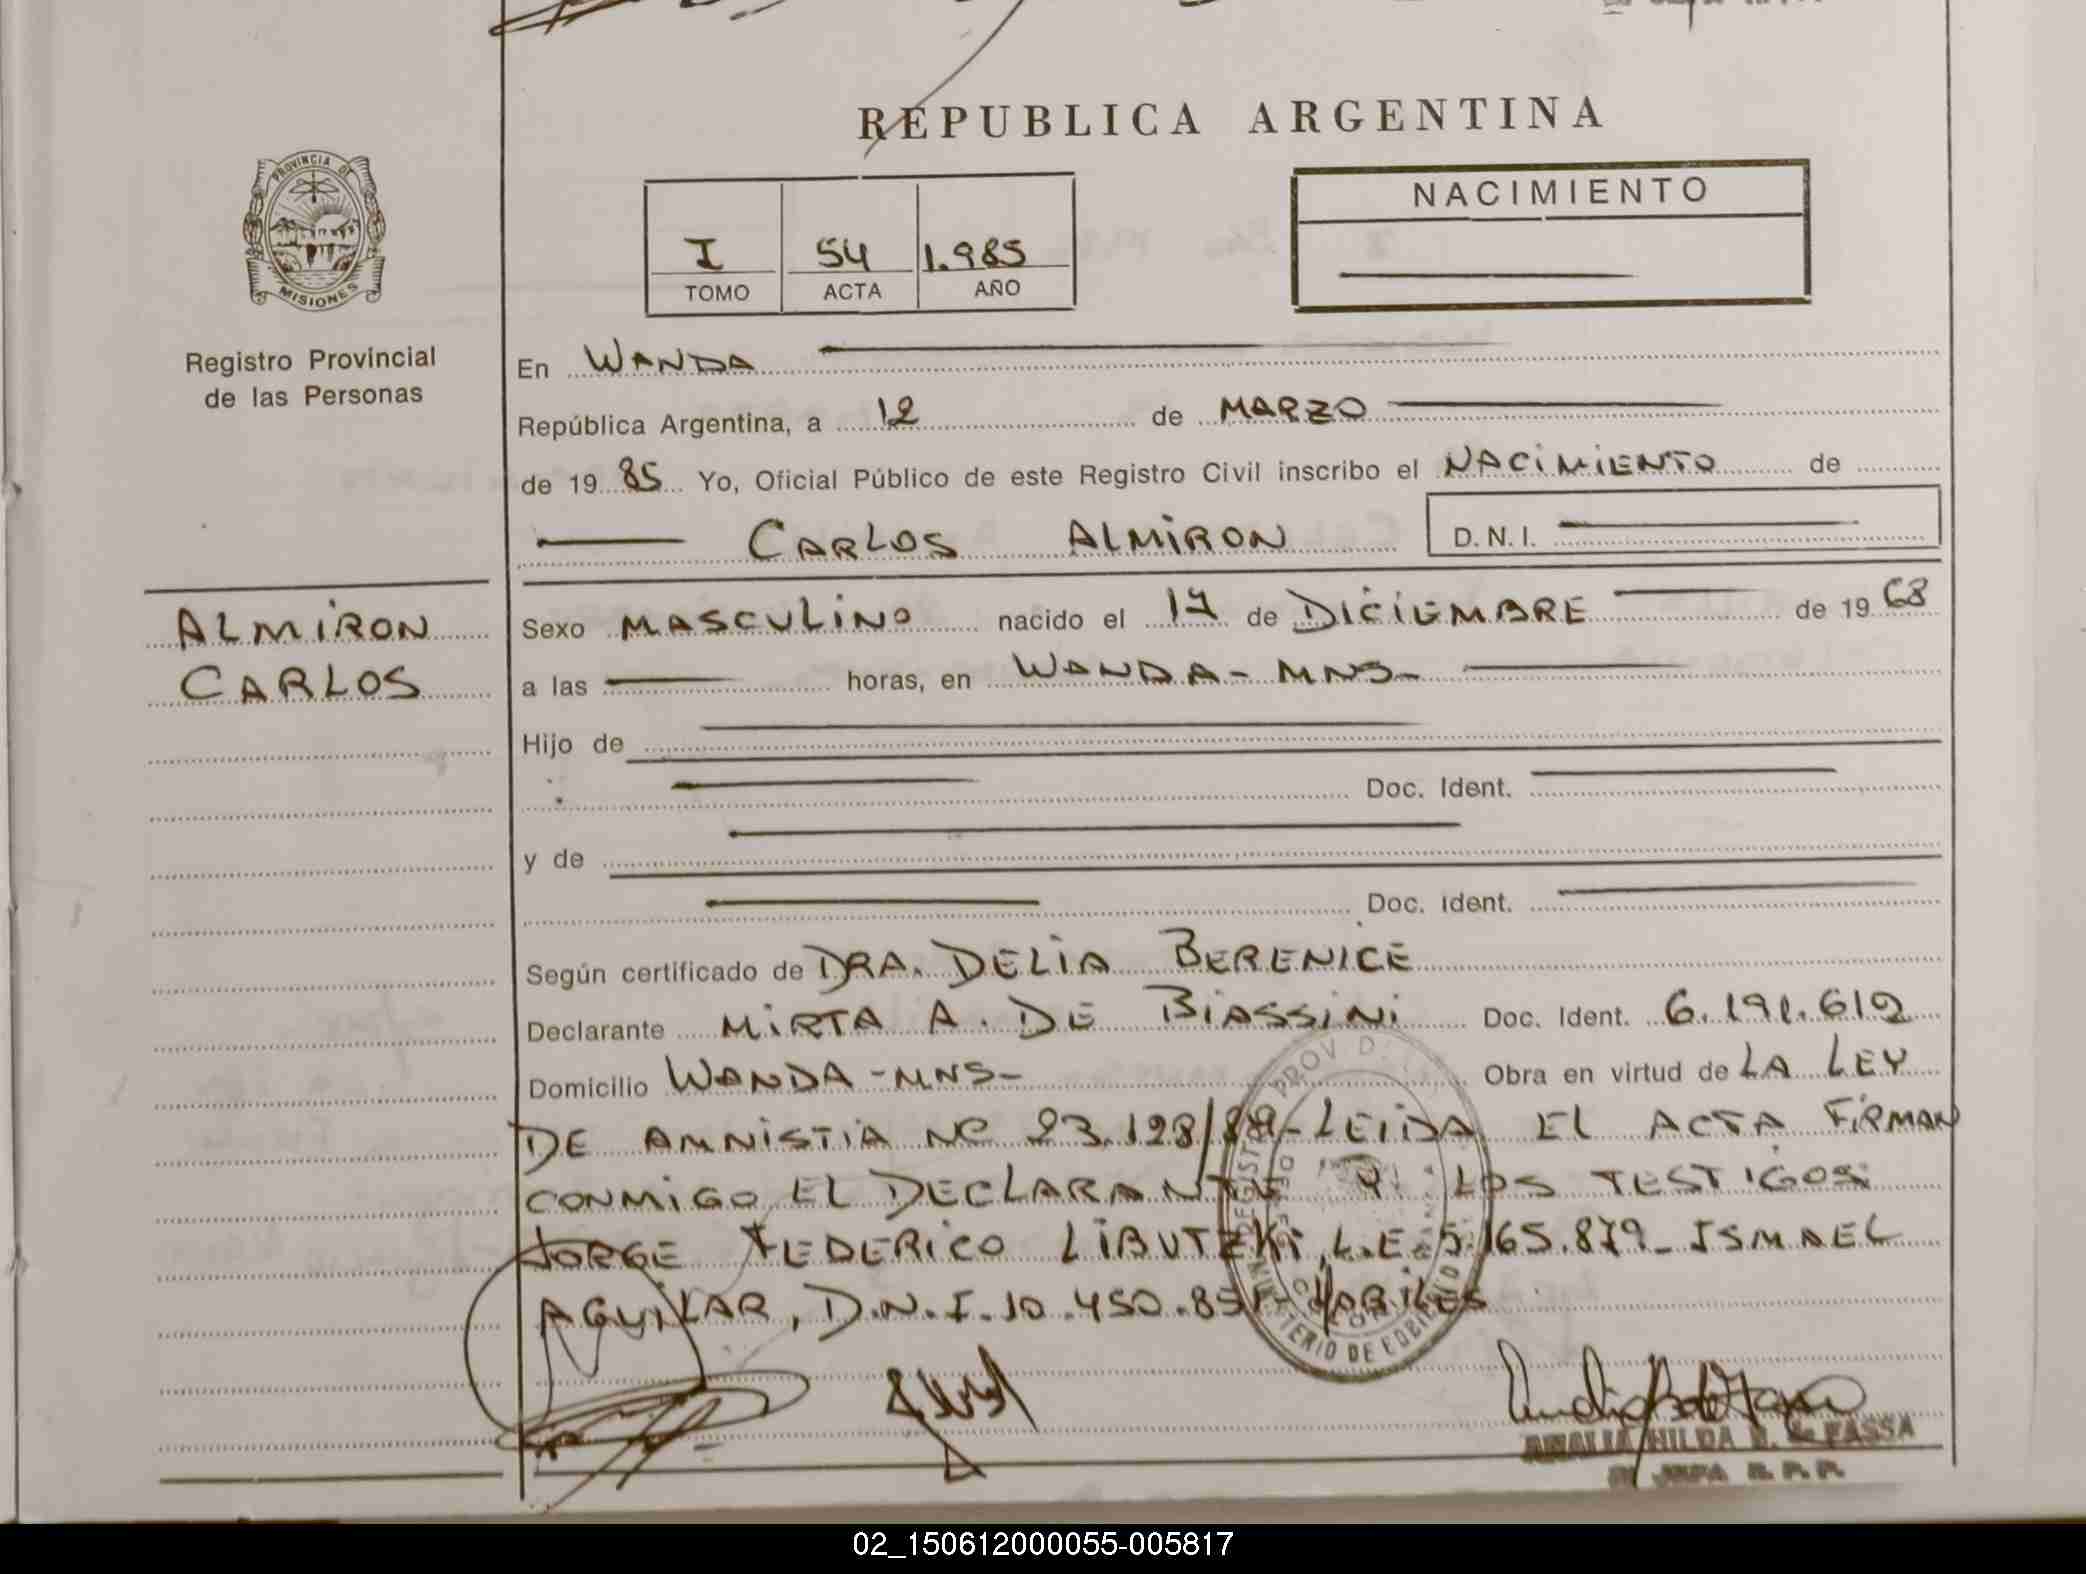 REPUBLICA ARGENTINA
PROVINCIA DE
MISIONES
Registro Provincial
de las Personas
I 54 1.985
TOMO ACTA AÑO
NACIMIENTO
En WANDA
República Argentina, a 12 de MARZO
de 19 85 Yo, Oficial Público de este Registro Civil inscribo el NACIMIENTO de
CARLOS ALMIRON D.N.I.
ALMIRON
CARLOS
Sexo MASCULINO nacido el 17 de DICIEMBRE de 19 68
a las horas, en WANDA - MNS-
Hijo de
Doc. Ident.
y de
Doc. Ident.
Según certificado de DRA. DELIA BERENICE
Declarante MIRTA A. DE BIASSINI Doc. Ident. 6.191.612
Domicilio WANDA -MNS- Obra en virtud de LA LEY
DE AMNISTIA Nº 23.128/ LEIDA EL ACTA FIRMAN
CONMIGO EL DECLARANTE Y LOS TESTIGOS
JORGE FEDERICO LIBUTZKI, L.E. 5.165.879_ ISMAEL
AGUILAR, D.N.I. 10.450.851-
PROV D
MINISTERIO DE GOBIERNO
AMALIA HILDA B. de FASSA
JEFA R. P. P.
02_150612000055-005817